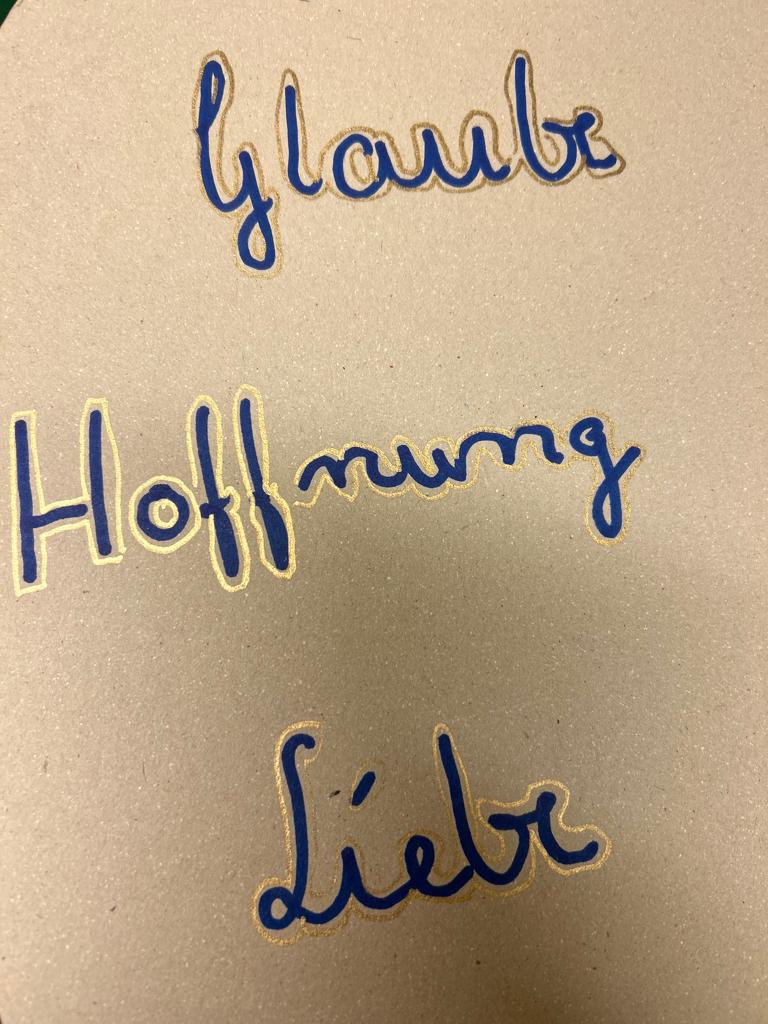 Glaube
Hoffnung
Liebe